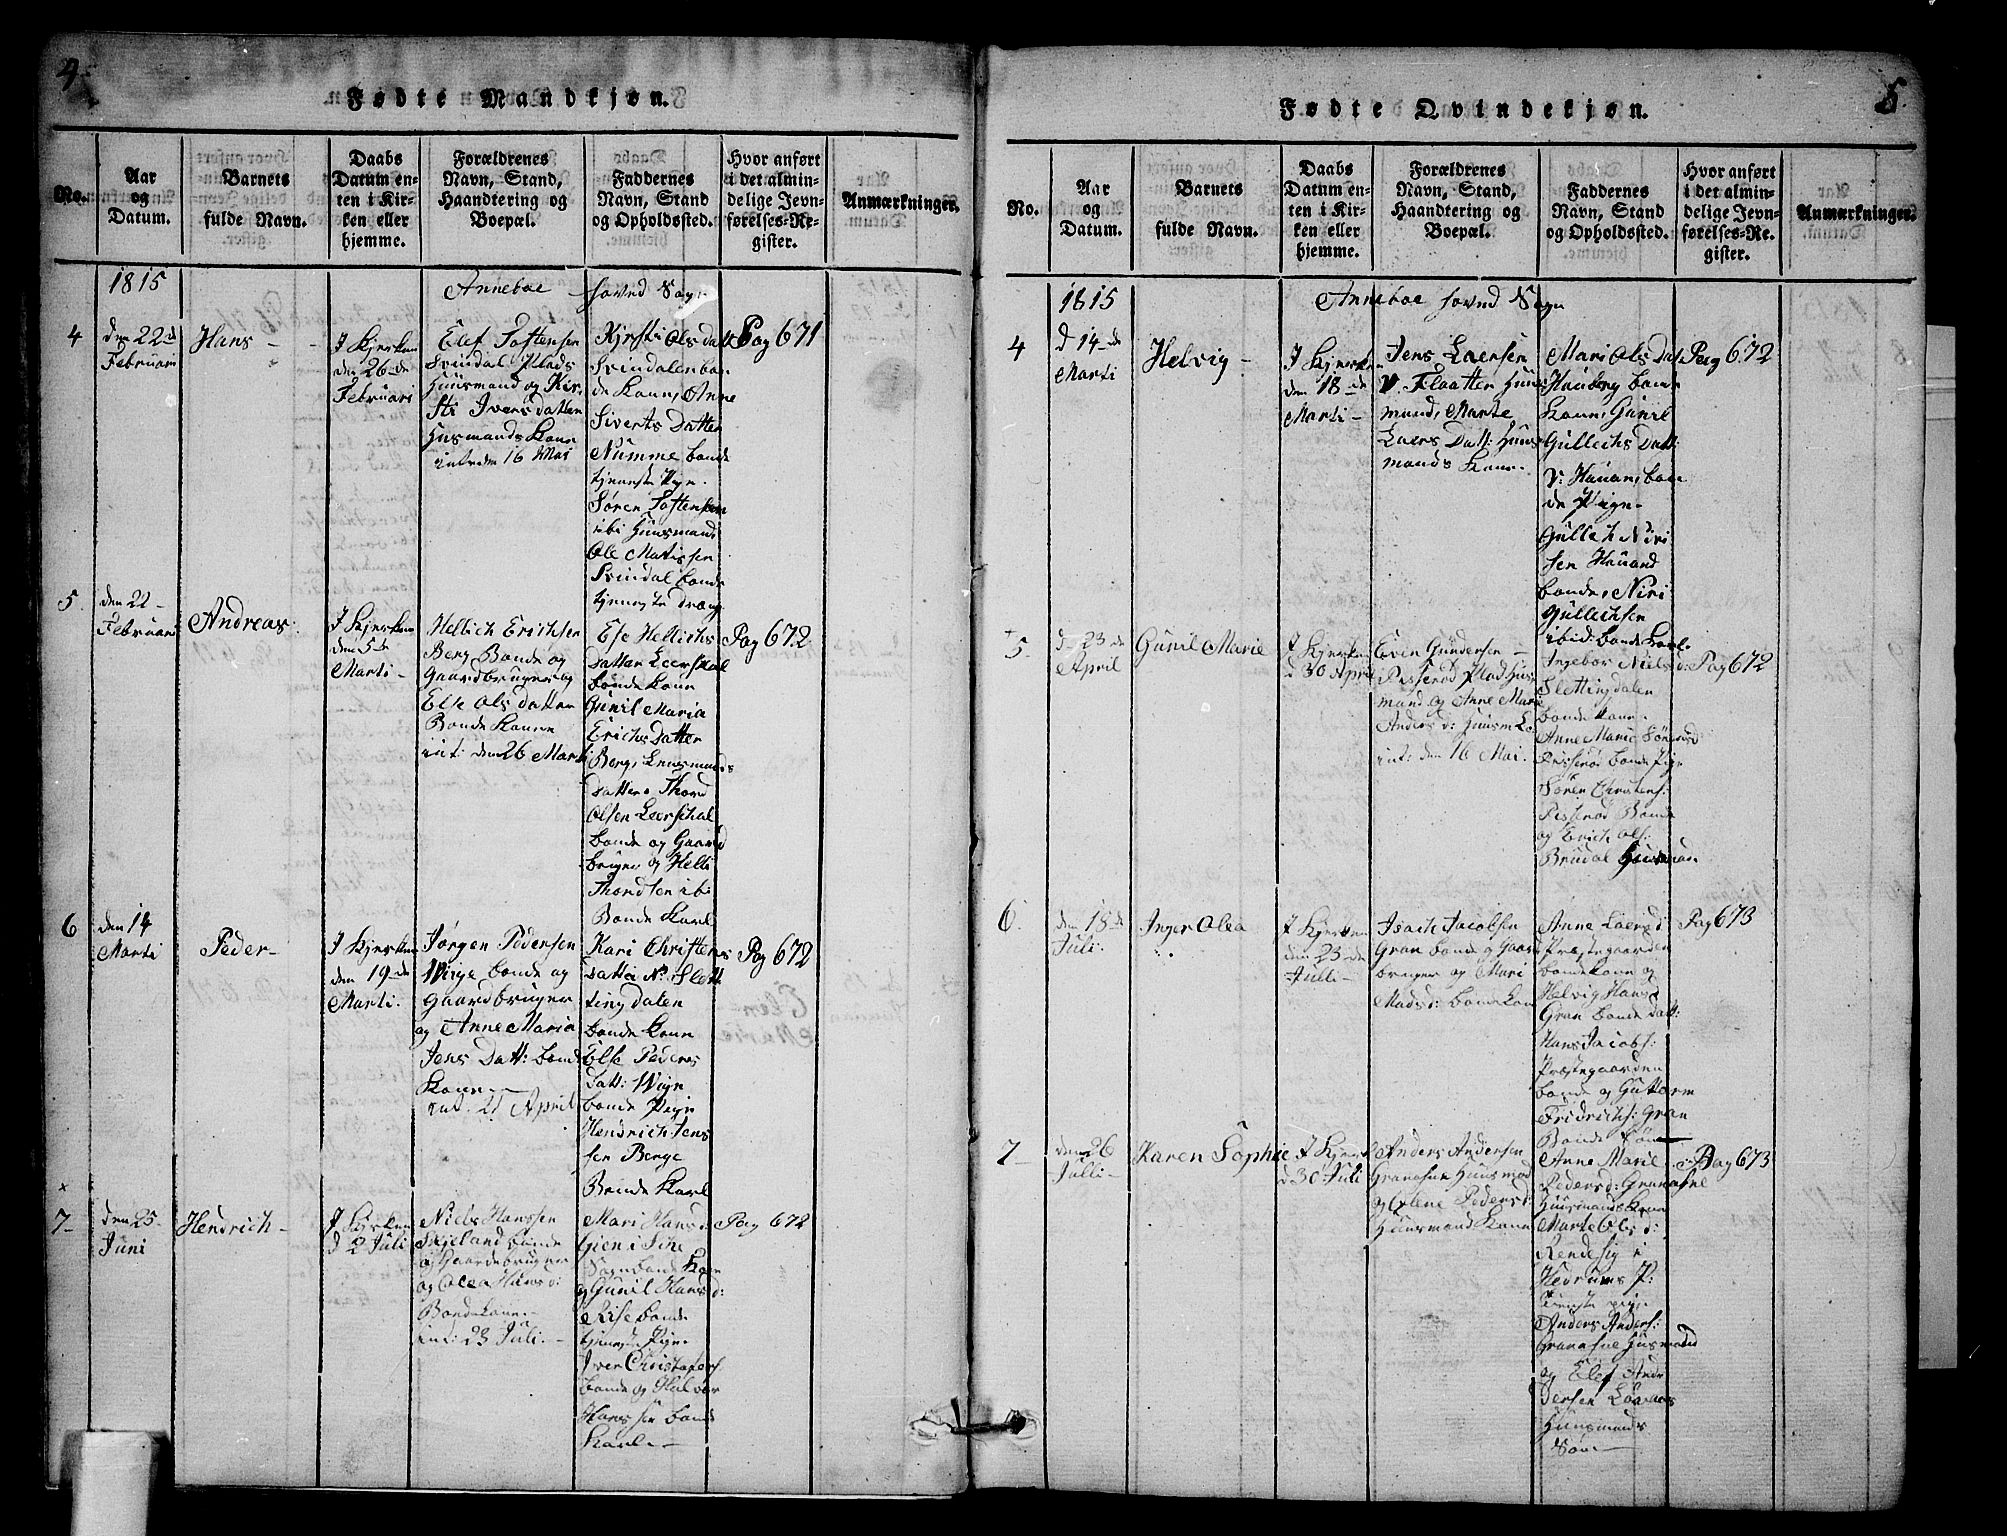 4
Fødte Mandkjøn.
No.
Aar
og
Datum.
Barnets
fulde Navn.
Daabs
Datum en-
ten i Kir-
ken eller
hjemme.
Forældrenes
Navn, Stand,
Haandtering og
Boepæl.
Faddernes
Navn, Stand
og Opholdssted.
Hvor anført
i det almin-
delige Jevn-
førelses-Re-
gister.
Anmærkninger.
1815
Anneboe hovnd Sogn
4
den 22de
Februari
Hans
I Kjerken
den 26de
Februari
Elef Toftensen
Svindal Plads
Huusmand og Kir-
sti Iversdatter
Husmands Kone
int. den 16 Mai
Kjrsti Olsdatter
Svindalen bon
de Kone, Anne
Siverts Datter
Numme bonde
tjeneste Pige.
Søren Toftensen
ibi Huusmand
Ole Matissen
Svindal bonde
tjeneste dreng
Pag 671
5.
den 22
Februari
Andreas.
I Kjerken
den 5de
Marti
Hellich Erichsen
Berg Bonde og
Gaardbruger og
Else Ols datter
Bonde Konen
int: den 26 Marti
Else Hellichs
datter Leerskal
bonde Kone
Gunil Maria
Erichs Datter
Berg, Lensmands
datter, Thord
Olsen Leerschal
bonde og Gaard
bruger og Helli
Thordsen ib:
Bonde Karl
Pag 672
6
den 14
Marti
Peder
I Kjerken
den 19de
Marti.
Jørgen Pedersen
Wige bonde og
Gaardbruger
og Anne Maria
Jens Datt: bond
Kone
int. 21 April
Kari Christens
datter N: Slett
tingdalen
bonde Kone
Else Peders
datt: Wige
bonde Pige
Hendrich Jens
sen Berge
Bonde Karl
Pag 672
7
den 25
Juni
Hendrich
I Kjerken
d 2 Juli
Niels Hanssen
Skjeland bonde
og Gaardebruger
og Olea Hans d:
Bondekone.
int: 23 Juli.
Mari Hans d:
Gien i Sike
Sogn bonde Kone
og Gunil Hans d:
Rise bonde
tjeneste Pige
Iver Christophers
bonde og Halvor
Hanssen bonde
Karl
Pag 672
5.
Fødte Qvindekjøn.
No.
Aar
og
Datum.
Barnets
fulde Navn.
Daabs
Datum en-
ten i Kir-
ken eller
hjemme.
Forældrenes
Navn, Stand,
Haandtering og
Boepæl.
Faddernes
Navn, Stand
og Opholdssted.
Hvor anført
i det almin-
delige Jevn-
førelses-Re-
gister.
Anmærkninger.
1815
Anneboe hovnd Sogn
4
d 14de
Marti
Helvig
I Kjerken
den 18de
Marti
Jens Laersen
V. Flaatten Huus
mand, Marte
Laers Datt: Huus
mands Kone.
Mari Ols Dat
Hauberg bonde
Kone, Gunil
Gullichs Datt:
V: Hauan, bon
de Pige
Gullich Niri
sen Hauand
bonde, Niri
Gullichsen
ibid: bonde Karl
Pag 672
5.
d. 23de
April
Gunil Marie
I Kjerken
d 30 April
Even Gundersen
Pisserød Plads Hus
mand og Anne Marie
Anders d: Huusm Ko
int: den 16 Mai.
Ingebor Niels d:
Slettingdalen
bonde Kone
Anne Marie Sørensd
Pisserød bonde Pige
Søren Christens:
Pisserød Bonde
og Erich Ols:
Brudal Huusmand
Pag 672
6.
den 18de
Juli.
Inger Olea
I Kjerken
den 23de
Julli
Isach Jacobsen
Gran bonde og Gaard
bruger og Mari
Mads d: bonde Kone
Anne Laers d
Præstegaarden
bonde Kone og
Helvig Hans d
Gran bonde datt:
Hans Jacobs:
Præstegaarden
bonde og Guttorm
Fridrichs: Gran
Bonde Søn
Pag 673
7
den 26
Julli
Karen Sophie
I Kjerk
d 30 Juli
Anders Andersen
Granasne Huusmand
og Lene Peders d:
Huusmand Kone
Anne Marie
Peders d: Granasne
Huusmands Kone
Marte Ols d:
Rendesig i
Hedrums P:
tieneste pige
Anders Anders:
Granasne Husmand
og Elef Andr
dersen Lønnes
Huusmands
Søn
Pag 673